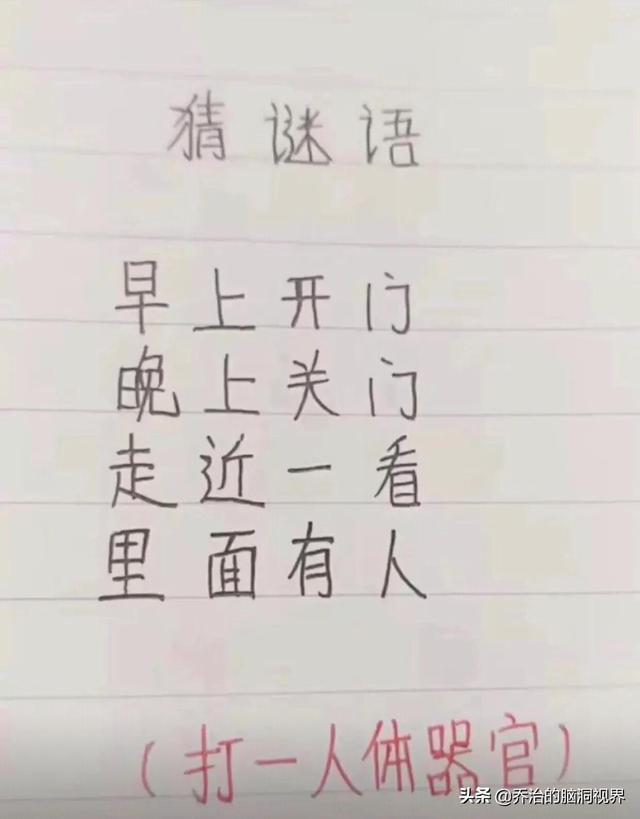 猜谜语
早上开门
晚上关门
走近一看
里面有人
(打一人体器官)
头条 @乔治的脑洞视界